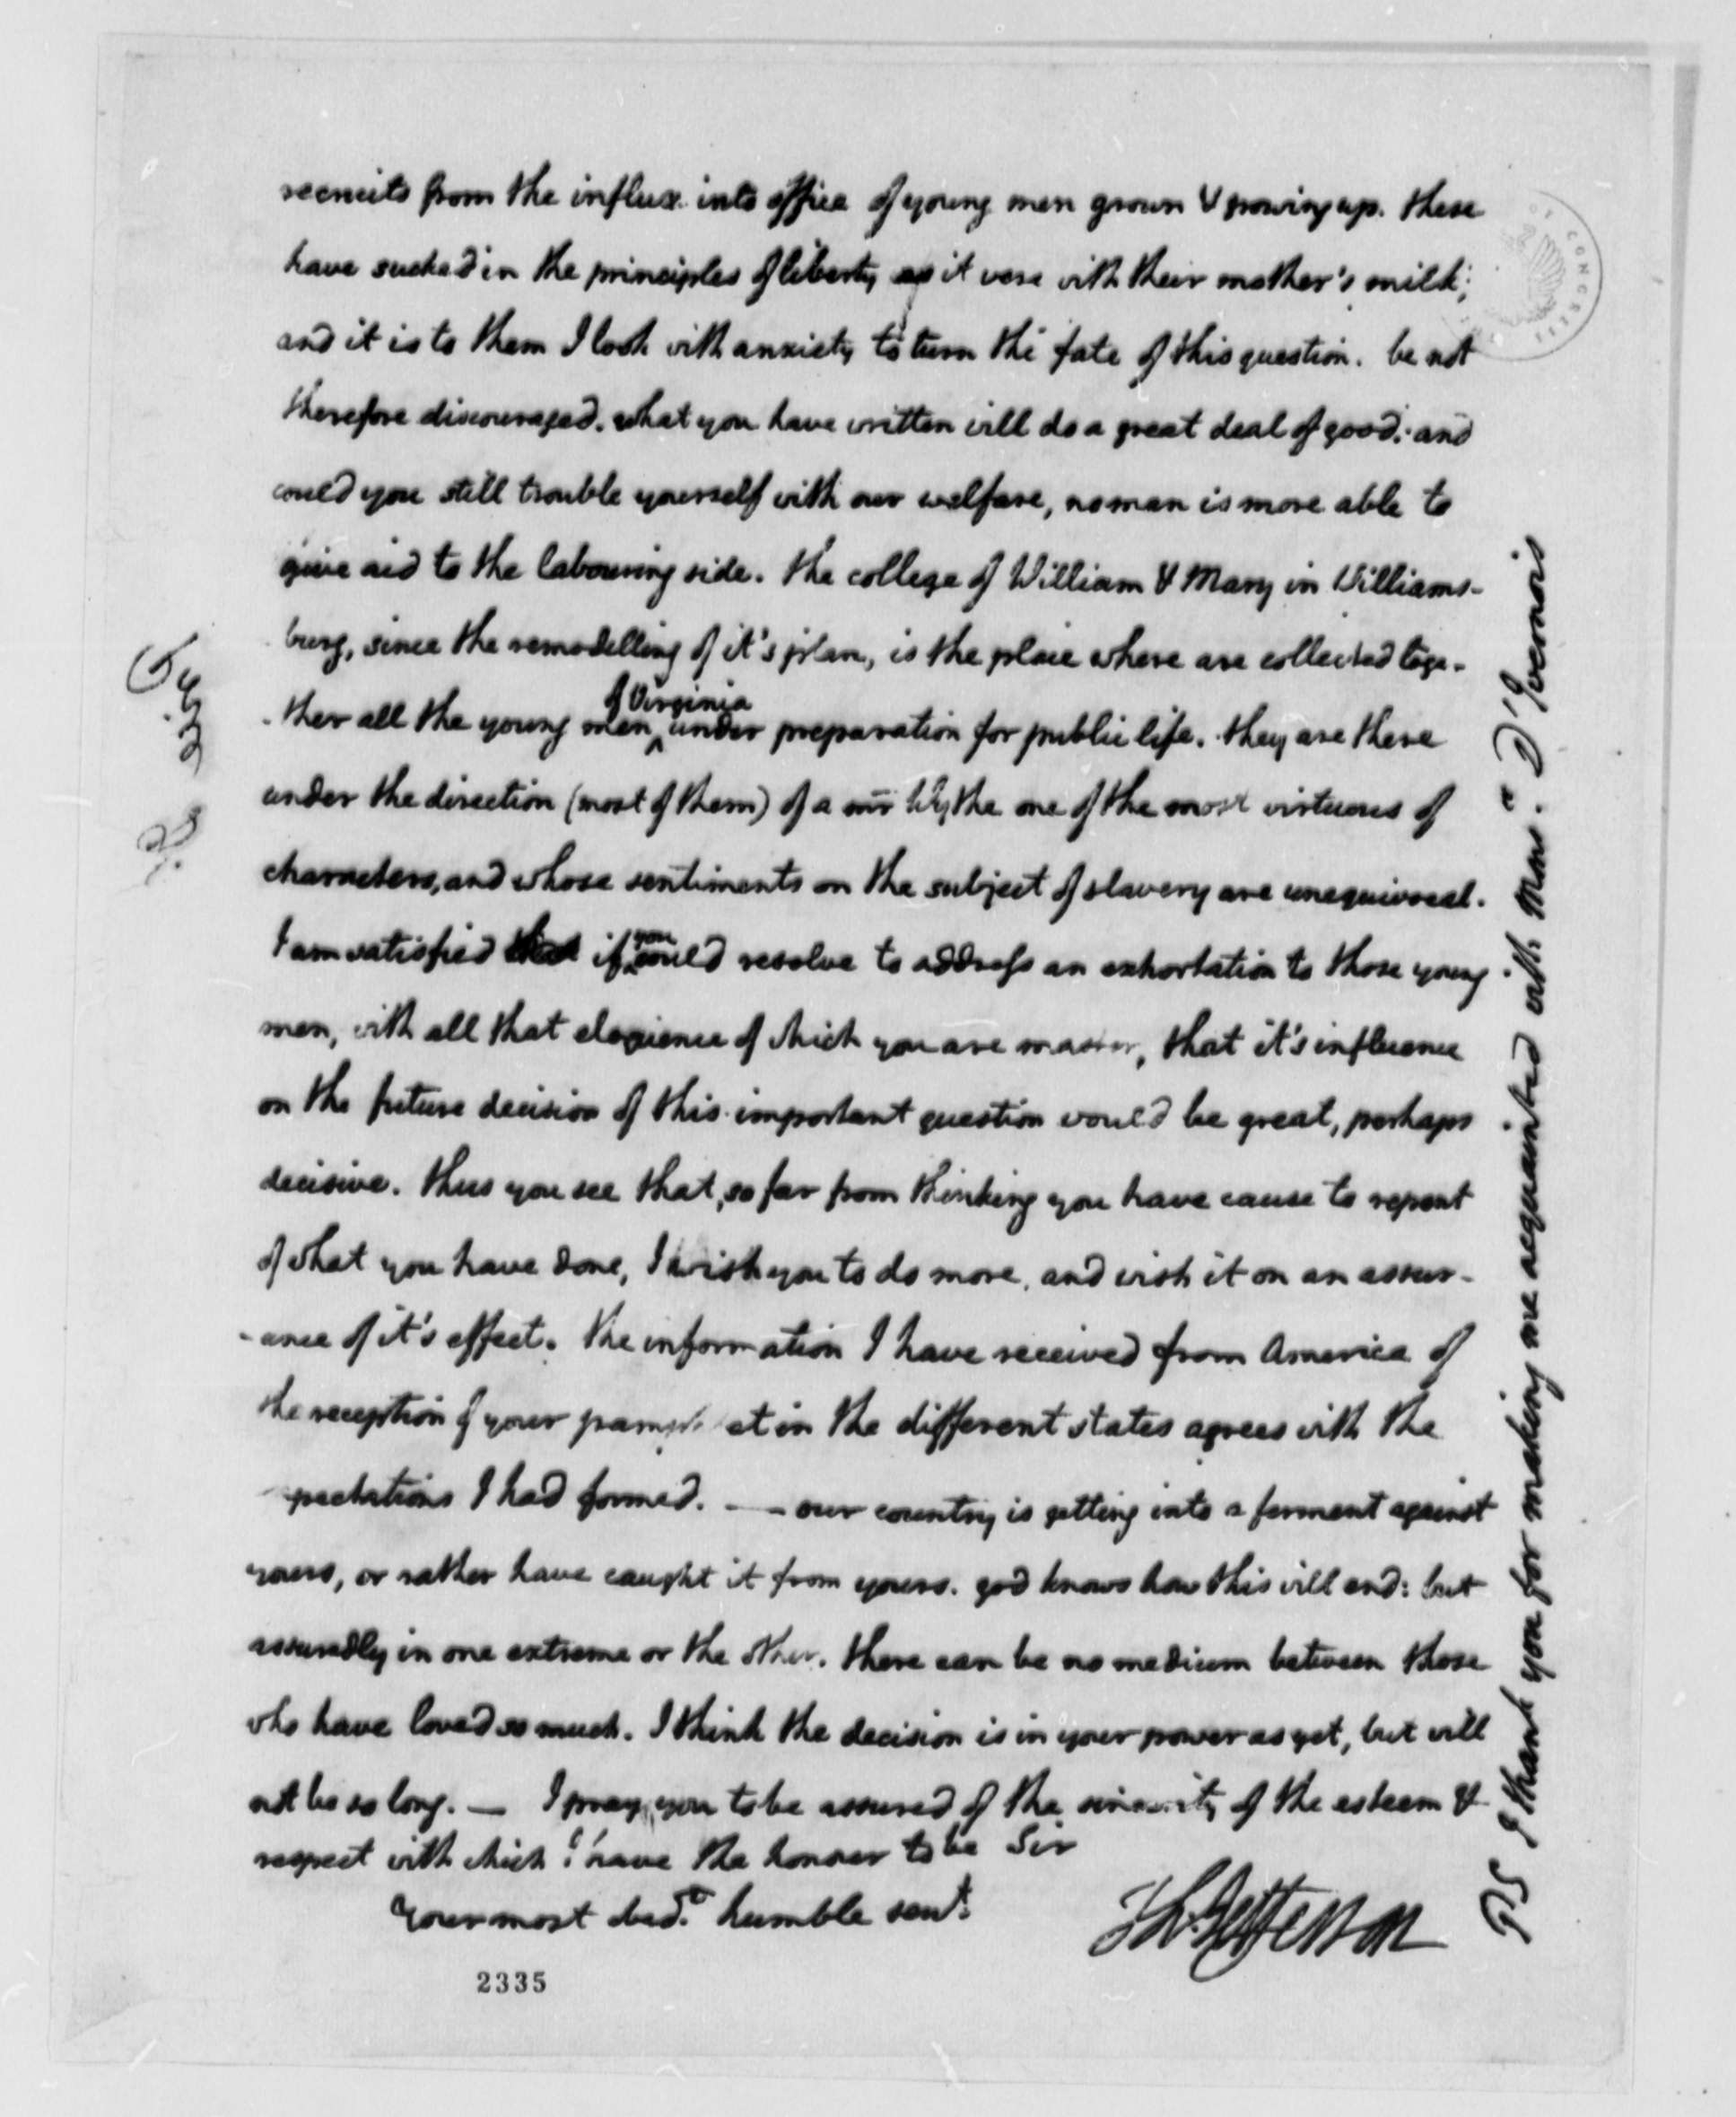 recruits from the influx into office of young men grown & growing up. these
have sucked in the principles of liberty as it were with their mother's milk;
and it is to them I look with anxiety to turn the fate of this question. be not
therefore discouraged. what you have written will do a great deal of good: and
could you still trouble yourself with our welfare, no man is more able to
give aid to the labouring side. the college of William & Mary in Williams-
burg, since the remodelling of it's plan, is the place where are collected toge-
of Virginia
-ther all the young men ^ under preparation for public life. they are there
under the direction (most of them) of a mr Wythe one of the most virtuous of
characters, and whose sentiments on the subject of slavery are unequivocal.
I am satisfied if you could resolve to address an exhortation to those young
men, with all that eloquence of which you are master, that it's influence
on the future decision of this important question would be great, perhaps
decisive. thus you see that, so far from thinking you have cause to repent
of what you have done, I wish you to do more, and wish it on an assur-
-ance of it's effect. the information I have received from America of
the reception of your pamphlet in the different states agrees with the
pectations I had formed. — our country is getting into a ferment against
yours, or rather have caught it from yours. god knows how this will end: but
assuredly in one extreme or the other. there can be no medium between those
who have loved so much. I think the decision is in your power as yet, but will
not be so long. — I pray you to be assured of the sincerity of the esteem &
respect with which I have the honour to be Sir
Your most obedt. humble servt.
Th: Jefferson
PS I thank you for making me acquainted with Monsr. D'Ivernois
Dr. Price
2335